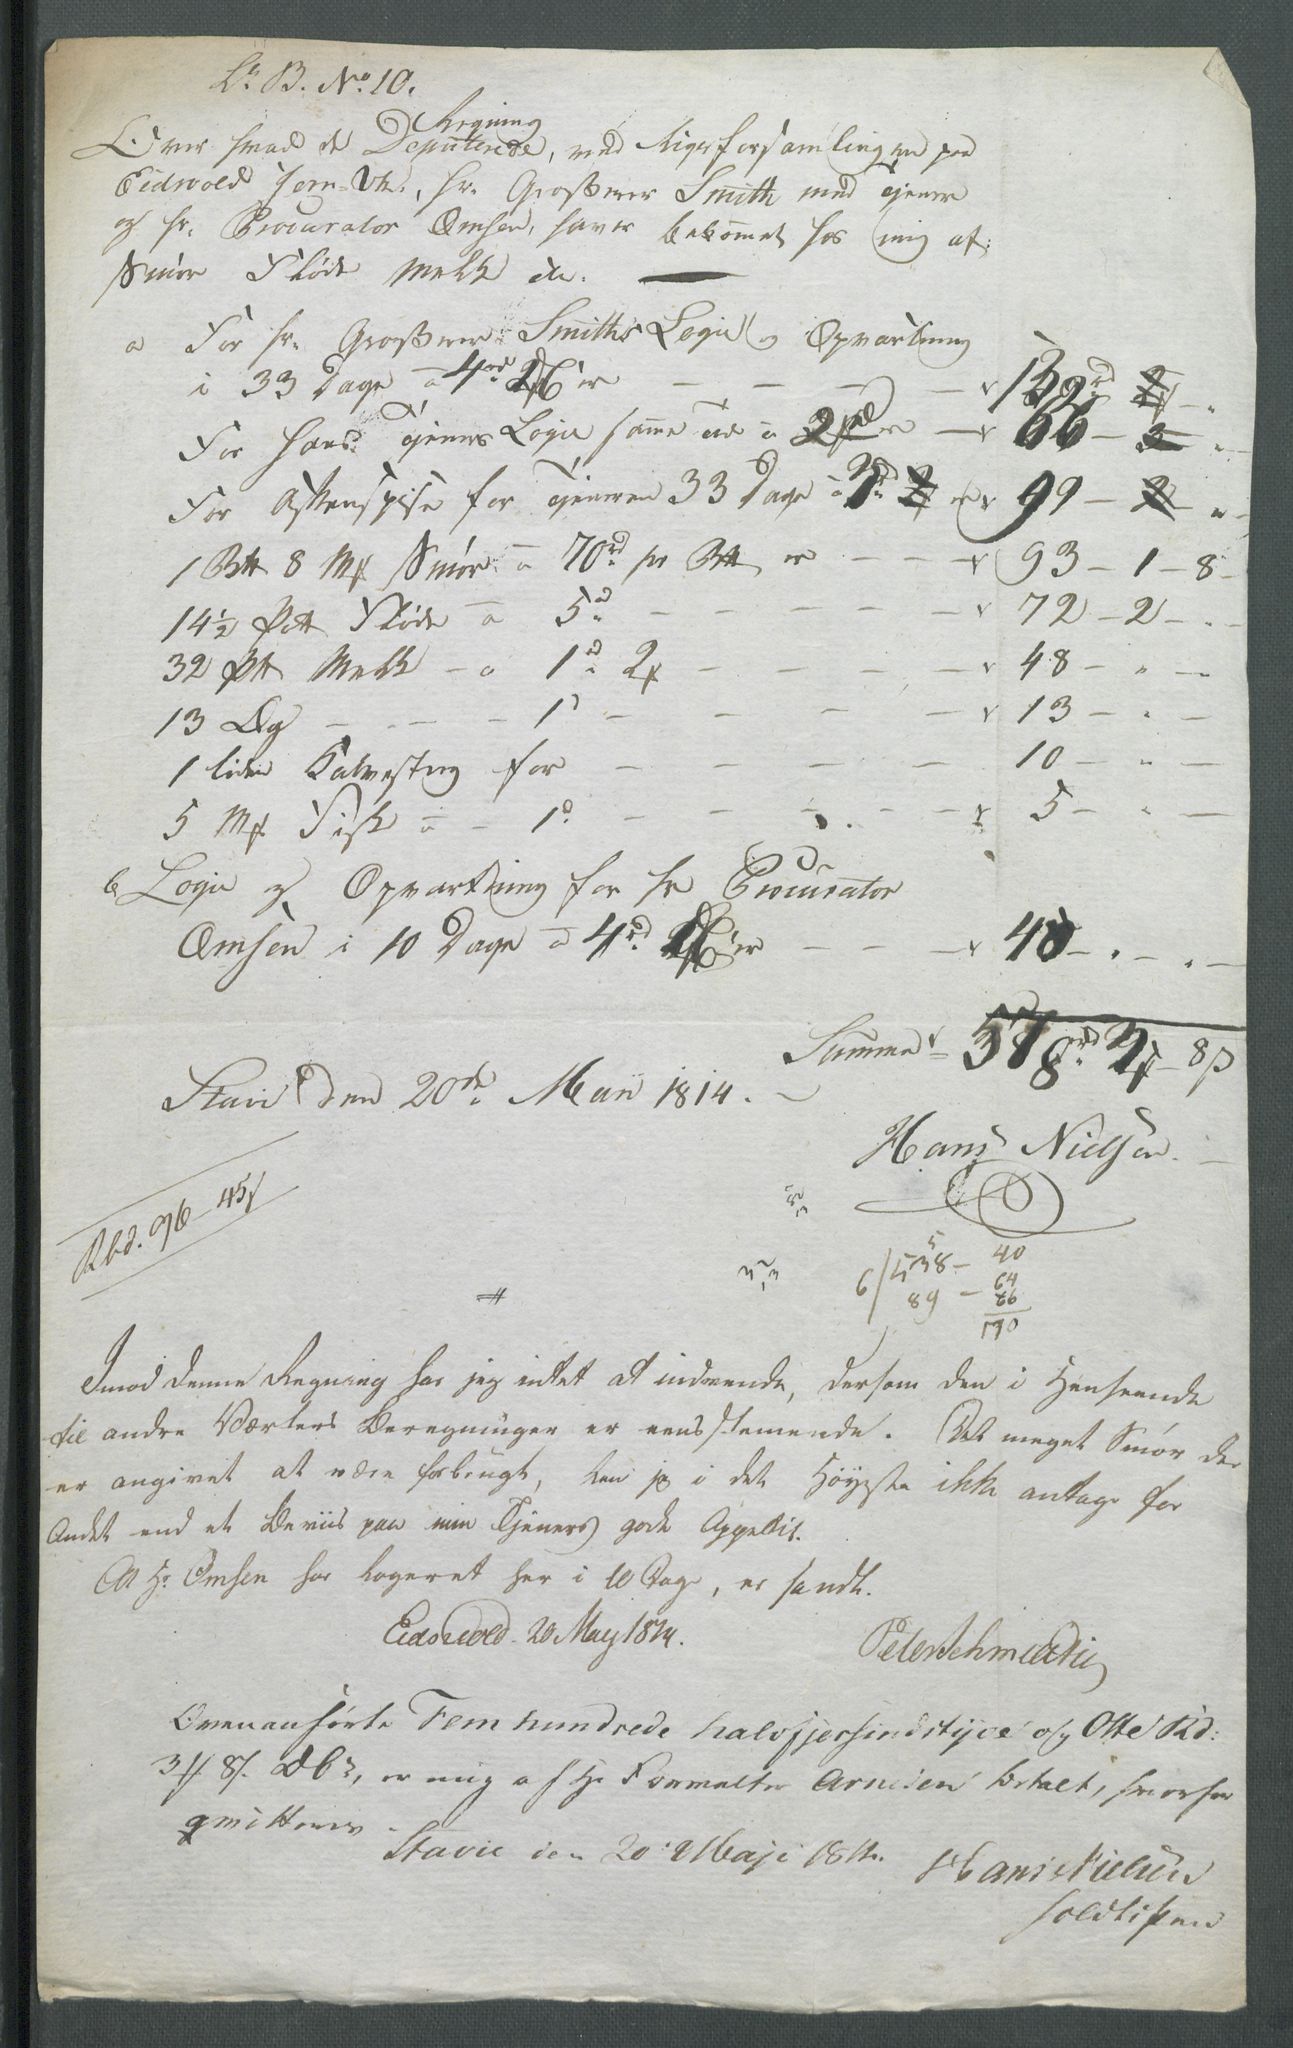 Lr B. No 10.
Regning
Over hvad de Deputerede, ved Rigsforsamlingen paa
Eidsvold Jern-Vk., Hr. Grosserer Smith med Tjener
og Hr. Procurator Omsen, haver bekommet hos mig af
Smør Fløde Melk etc.
a For Hr. Grosserer Smiths Logie og Opvartning
i 33 Dage a 4rd er — 132rd
For hans Tjeners Logie samme Tid a 2rd er — 66 —
For Aftenspise for Tjeneren 33 Dage a 3rd er 99 —
1 Btt 8 Mk Smør a 70rd pr Btt er — 93 — 1 — 8
14½ Pott Fløde a 5rd — 72 — 2 —
32 Ptt Melk — a 1rd 2 — 48 — " —
13 Æg — 1 — 13 — " —
1 liden Kalvesteg for — 10 — " —
5 Mk Fisk a — 1 — 5 — " —
b Logie og Opvartning for Hr Procurator
Omsen i 10 Dage a 4rd er — 40 — " — " —
Summa 578rd 3 — 8
Stavi den 20de Maii 1814.
Hans Nielsen
Rbd. 96 — 45
6/538 — 40
89 — 64
66
170
Imod denne Regning har jeg intet at indvende, dersom den i Henseende
til andre Værters Beregninger er eensstemmende. Det meget Smør der
er angivet at være forbrugt, kan jeg i det Høyeste ikke antage for
Andet end et Beviis paa min Tjeners gode Appetit.
At Hr Omsen har logeret her i 10 Dage, er sandt.
Eidsvold 20 May 1814.
Peter Schmidt
Ovenanførte Fem hundrede halvfjersindstyve og Otte Rd:
3 8 DC, er mig af Hr Forvalter Arnesen betalt, hvorfor
qvitteres.
Stavie den 20 Maji 1814.
Hans Nielsen